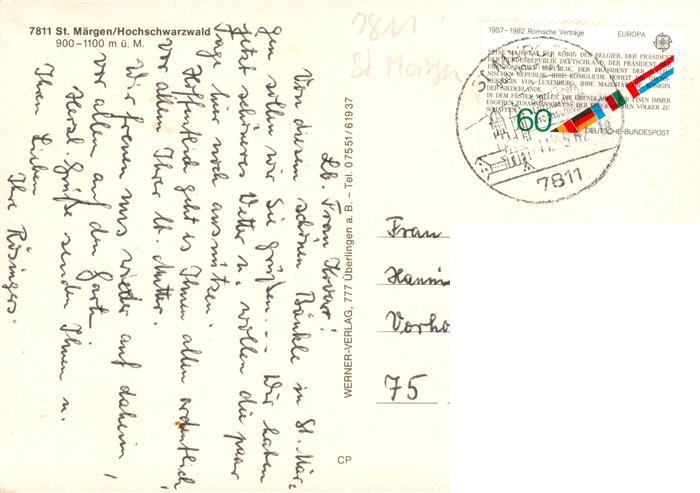 7811 St. Märgen/Hochschwarzwald
900–1100 m ü. M.
Lb. Frau Horver!
Von diesem schönen Bänkle in St. Mär-
gen wollen wir Sie grüßen. – – Wir haben
jetzt schöneres Wetter u. wollen die paar
Tage hier noch ausnützen.
Hoffentlich geht es Ihnen allen ordentlich,
vor allem Ihrer lb. Mutter.
Wir freuen uns wieder auf daheim,
vor allem auf den Garten.
Herzl. Grüße senden Ihnen u.
Ihren Lieben
Ihre Rösingers.
WERNER-VERLAG, 777 Überlingen a. B. – Tel. 07551/61937
CP
7811
St. Märgen
1957–1982 Römische Verträge
EUROPA
SEINE MAJESTÄT DER KÖNIG DER BELGIER, DER PRÄSIDENT
DER BUNDESREPUBLIK DEUTSCHLAND, DER PRÄSIDENT DER
FRANZÖSISCHEN REPUBLIK, DER PRÄSIDENT DER
NISCHEN REPUBLIK, IHRE KÖNIGLICHE HOHEIT DIE
HERZOGIN VON LUXEMBURG, IHRE MAJESTÄT DIE KÖNIGIN
DER NIEDERLANDE,
IN DEM FESTEN WILLEN, DIE GRUNDLAGEN FÜR EINEN IMMER
ENGEREN ZUSAMMENSCHLUSS DER EUROPÄISCHEN VÖLKER ZU
SCHAFFEN
60
DEUTSCHE BUNDESPOST
7811
Frau
Hanni
Vorho
75